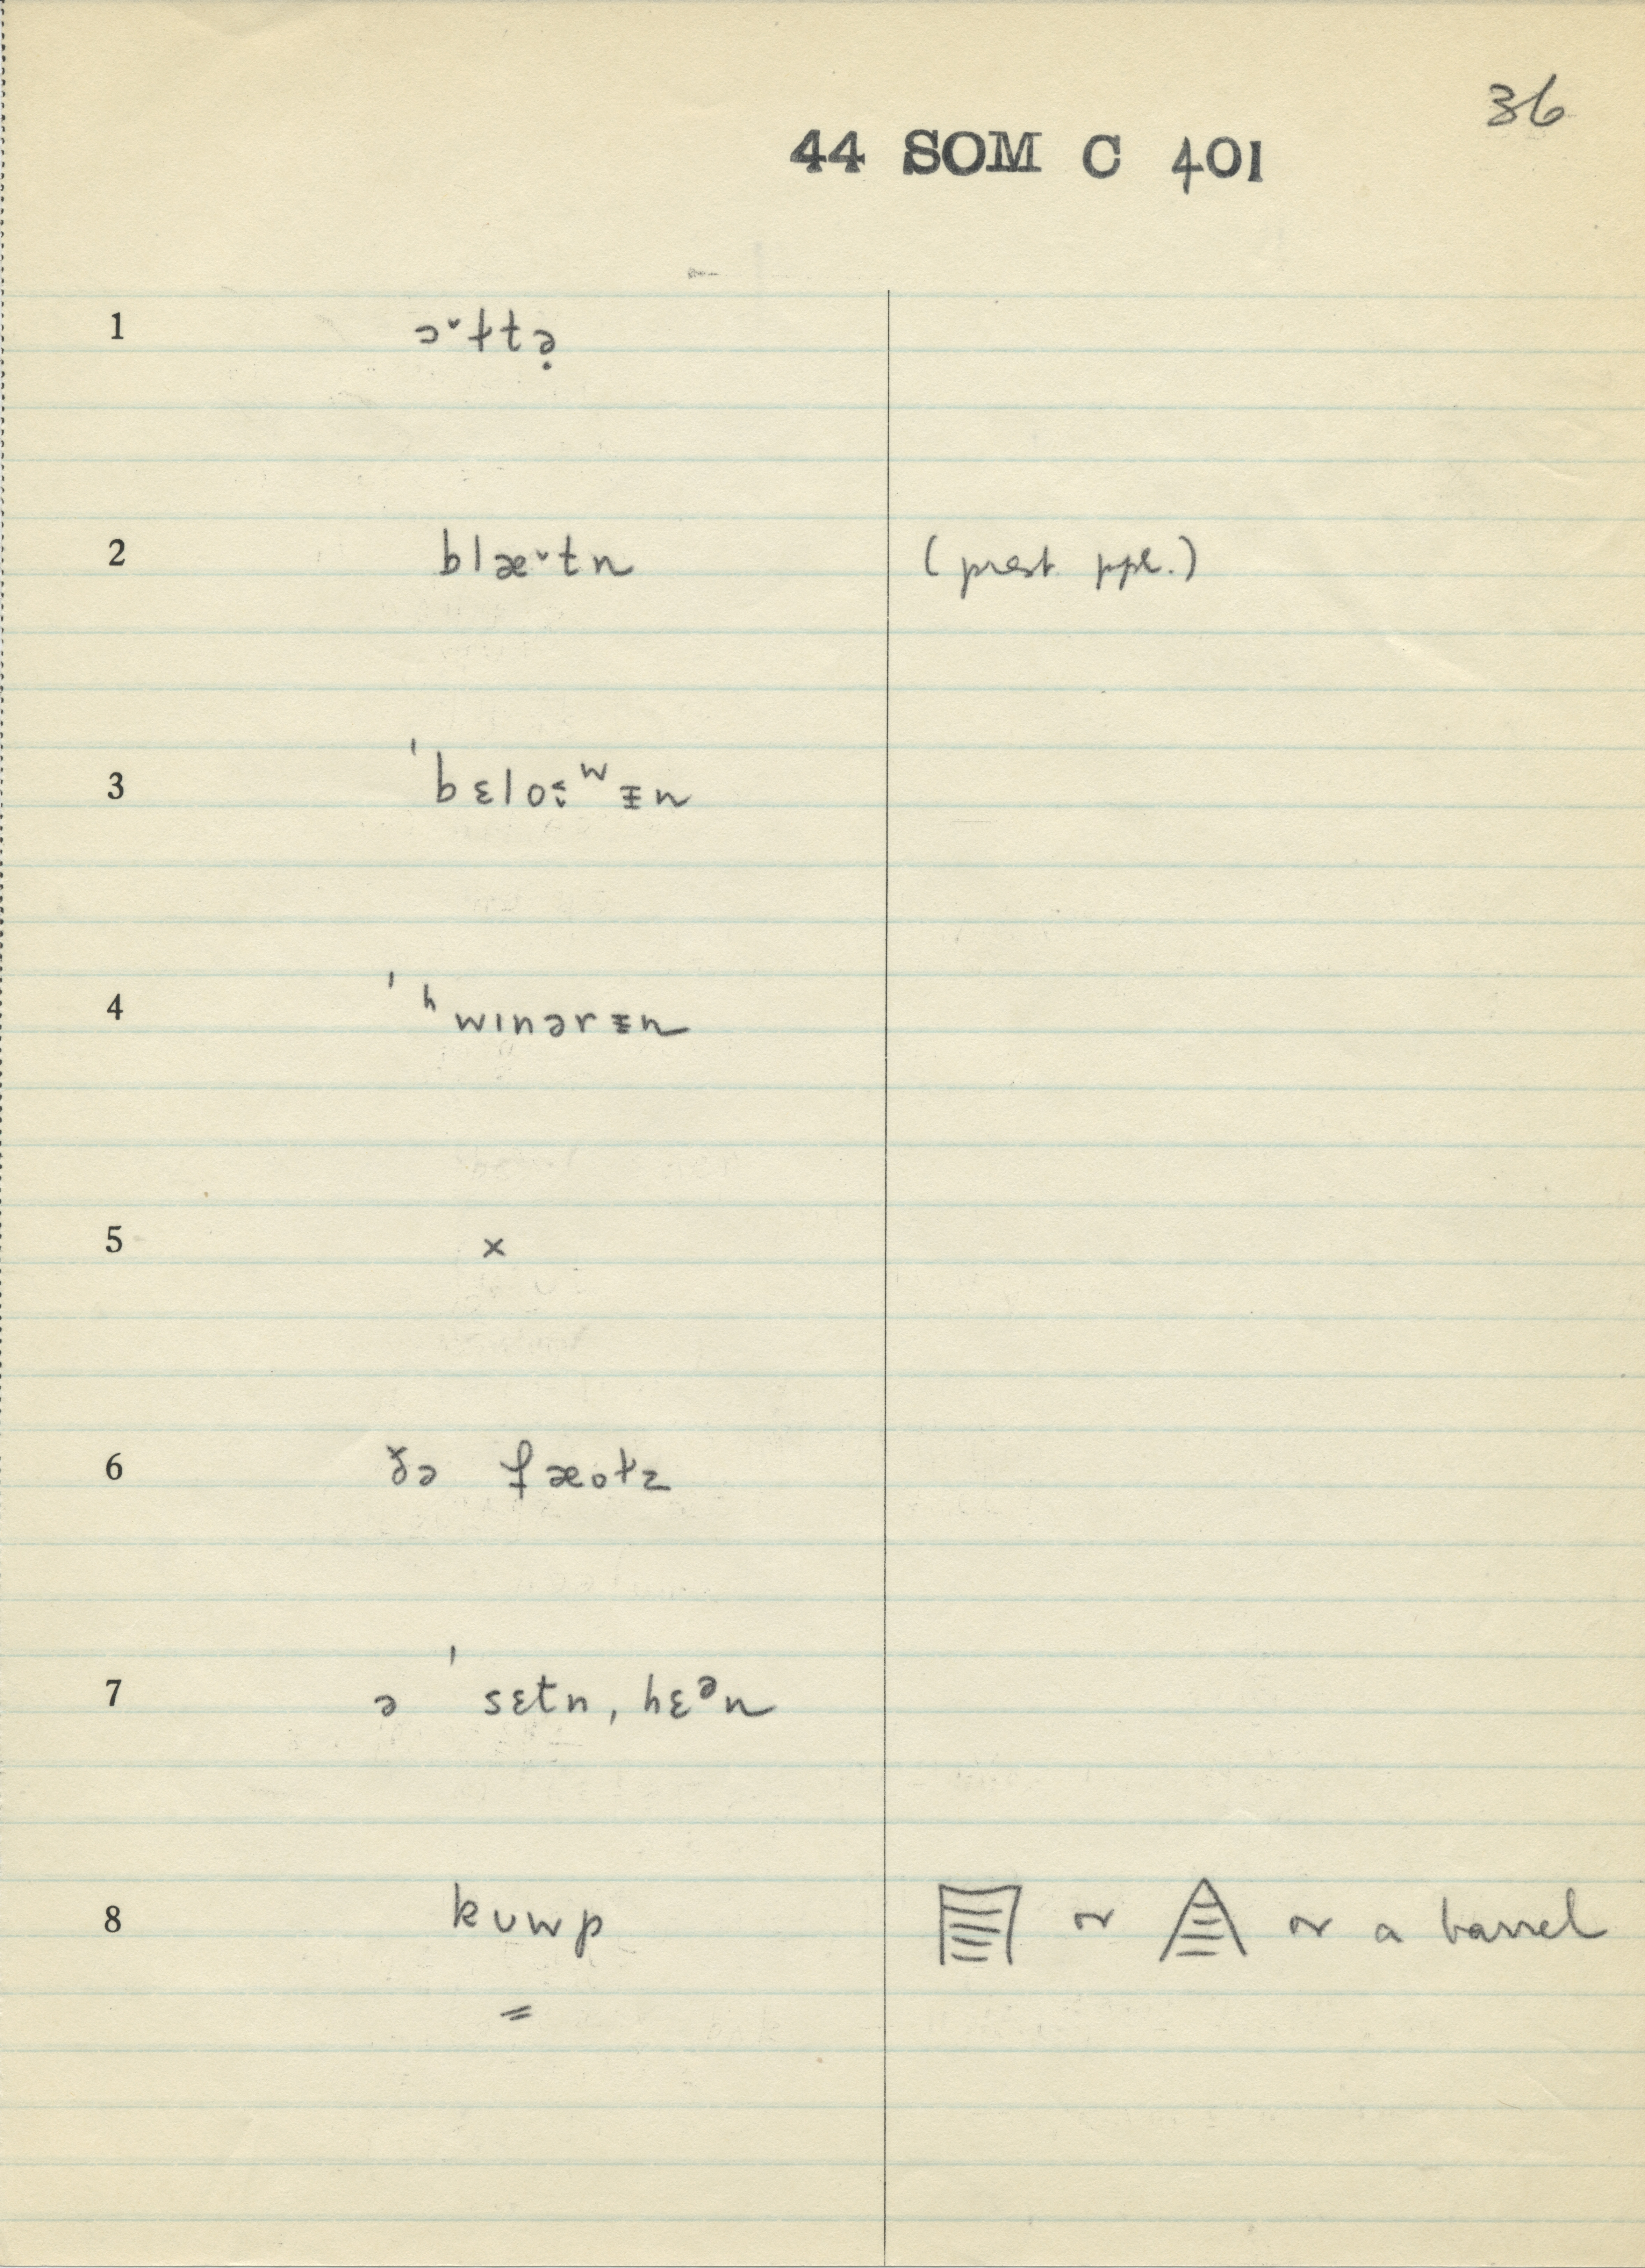 36
44 SOM C 401
1 ɔ˅ɫtə̣
2 blæ˅tn (prest ppl.)
3 ˈbɛloˑʷᵻn
4 ˈʰwɪnərᵻn
5 x
6 ðə fæotz
7 ə ˈsɛtn, hɛᵊn
8 kʊwp or or a barrel
=